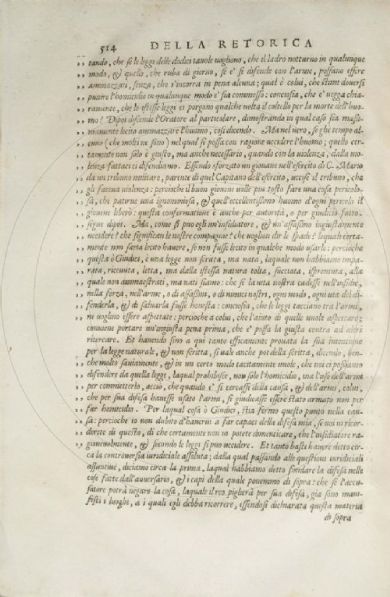 514 DELLA RETORICA
tando, che se le leggi delle dodici tavole vogliono, che il ladro notturno in qualunque
modo, & quello, che ruba di giorno, se e' si difende con l'arme, possano essere
ammazzati, senza, che s'incorra in pena alcuna; qual è colui, che stimi doversi
punire l'homicidio in qualunque modo e' sia commesso: concosia, che e' vegga chia-
ramente, che le istesse leggi ci porgono qualche volta il coltello per la morte dell'huo-
mo? Dipoi discende l'Oratore al particolare, dimostrando in qual caso sia mas
simamente lecito ammazzare l'huomo, cosi dicendo. Ma nel vero, se gli è tempo al-
cuno (che molti ne sono) nel quale si possa con ragione uccidere l'huomo; quello cer-
tamente non solo è giusto, ma anche necessario, quando con la violenza, dalla vio-
lenza fattaci ci difendiamo. Essendo sforzato un giovane nell'essercito di C. Mario
da un tribuno militare, parente di quel Capitano dell'essercito, uccise il tribuno, che
gli faceva violenza: percioche il buon giovane volle piu tosto fare una cosa pericolo-
sa, che patirne una ignominiosa, & quell'eccellentissimo huomo d'ogni pericolo il
giovane liberò: questa confermatione è anche per autorità, o per giudicio fatto.
segue dipoi. Ma, come si può egli un'insidiatore, & un'assassino ingiustamente
uccidere? che significano le nostre compagnie? che vogliono dir le spade? lequali certa-
mente non saria lecito havere, se non fusse lecito in qualche modo usarle: percioche
questa ò Giudici, è una legge non scritta, ma nata, laquale non habbiamo impa-
rata, ricevuta, letta, ma dalla istessa natura tolta, succiata, & spremuta, alla
quale non ammaestrati, ma nati siamo: che se la vita nostra cadesse nell'insidie,
nella forza, nell'arme, o di assassini, o di nimici nostri, ogni modo, ogni via del di-
fenderla, & di salvarla fusse honesta: concosia, che le leggi tacciano tra l'armi,
ne vogliono essere aspettate: percioche a colui, che l'aiuto di quelle vuole aspettare;
conviene portare un'ingiusta pena prima, che e' possa la giusta contra ad altri
ricercare. Et havendo sino a qui tanto efficacemente provata la sua intentione
per la legge naturale, & non scritta, si vale anche poi della scritta, dicendo, ben-
che molto saviamente, & in un certo modo tacitamente vuole, che noi ci possiamo
difendere da quella legge, laqual prohibisce, non solo l'homicidio, ma l'uso dell'armi
per commetterlo, accio, che quando e' si cercasse della causa, & dell'armi, colui,
che per sua difesa havesse usato l'armi, si giudicasse essere stato armato non per
far homicidio. Per laqual cosa ò Giudici, stia fermo questo punto nella cau-
sa: percioche io non dubito d'havervi a far capaci della difesa mia, se voi vi ricor-
darete di questo, di che certamente non vi potete dimenticare, che l'insidiatore ra-
gionevolmente, & secondo le leggi si può uccidere. Et tanto basti havere detto cir-
ca la controversia iuridiciale assoluta; dalla qual passando alle questioni iuridiciali
assuntive, diciamo circa la prima, laqual habbiamo detto fondare la difesa nelle
cose fatte dall'avversario, & i capi della quale ponemmo di sopra: che se l'accu-
satore potrà negare la cosa, laquale il reo piglierà per sua difesa, gia sono mani-
festi i luoghi, a i quali egli debba ricorrere, essendosi dichiarata questa materia
di sopra